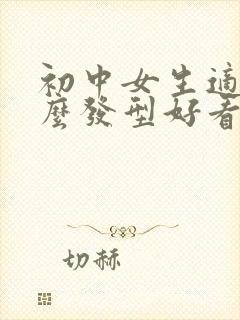 初中女生適
麼發型好看
切赫